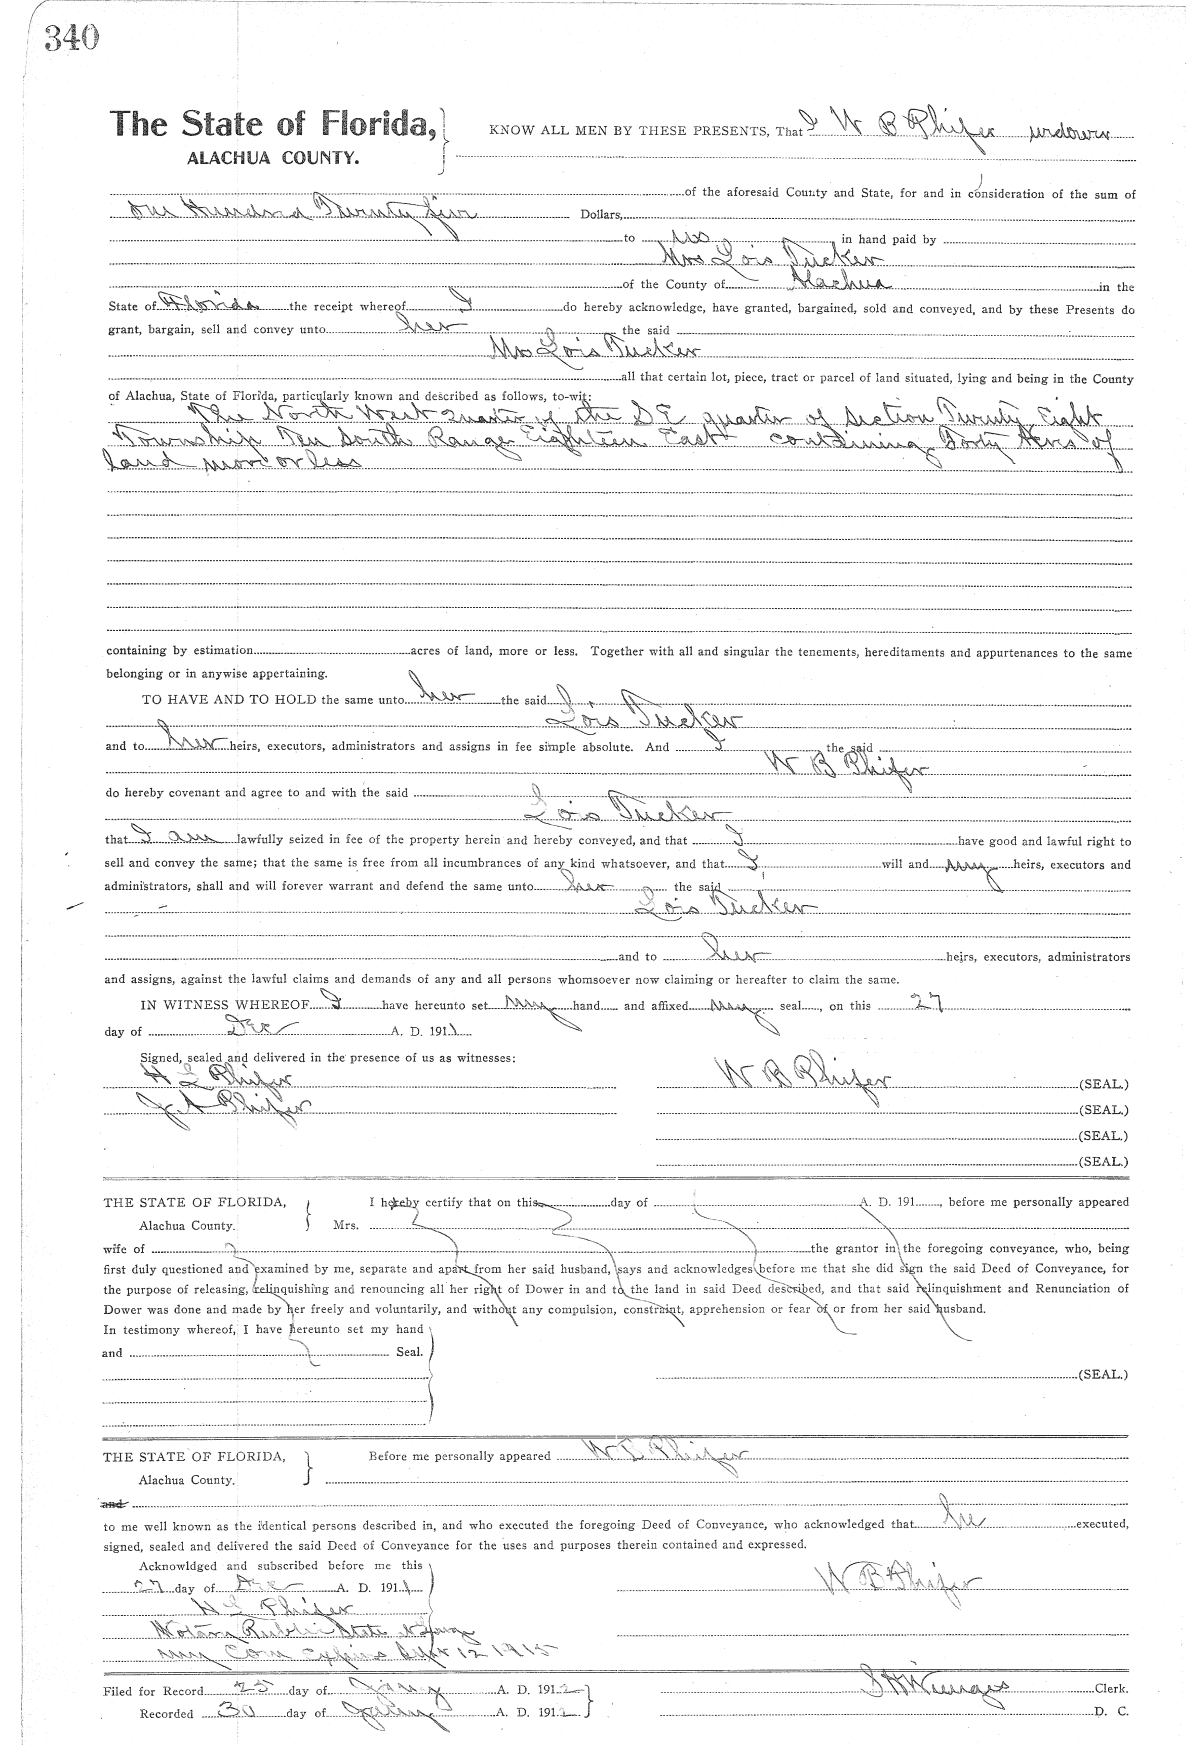 340
The State of Florida, KNOW ALL MEN BY THESE PRESENTS, That I W B Phifer widower
ALACHUA COUNTY.
of the aforesaid County and State, for and in consideration of the sum of
One Hundred Twenty five Dollars,
to me in hand paid by
Mrs Lois Tucker
of the County of Alachua in the
State of Florida the receipt whereof I do hereby acknowledge, have granted, bargained, sold and conveyed, and by these Presents do
grant, bargain, sell and convey unto her the said
Mrs Lois Tucker
all that certain lot, piece, tract or parcel of land situated, lying and being in the County
of Alachua, State of Florida, particularly known and described as follows, to-wit:
The North West quarter of the S E quarter of Section Twenty Eight
Township Ten South Range Eighteen East containing Forty Acres of
land more or less
containing by estimation acres of land, more or less. Together with all and singular the tenements, hereditaments and appurtenances to the same
belonging or in anywise appertaining.
TO HAVE AND TO HOLD the same unto her the said
Lois Tucker
and to her heirs, executors, administrators and assigns in fee simple absolute. And I the said
W B Phifer
do hereby covenant and agree to and with the said
Lois Tucker
that I am lawfully seized in fee of the property herein and hereby conveyed, and that I have good and lawful right to
sell and convey the same; that the same is free from all incumbrances of any kind whatsoever, and that I will and my heirs, executors and
administrators, shall and will forever warrant and defend the same unto her the said
Lois Tucker
and to her heirs, executors, administrators
and assigns, against the lawful claims and demands of any and all persons whomsoever now claiming or hereafter to claim the same.
IN WITNESS WHEREOF I have hereunto set my hand and affixed my seal, on this 27
day of Dec A. D. 1911
Signed, sealed and delivered in the presence of us as witnesses:
H L Phifer W B Phifer (SEAL.)
J A Phifer (SEAL.)
(SEAL.)
(SEAL.)
THE STATE OF FLORIDA, I hereby certify that on this day of A. D. 191, before me personally appeared
Alachua County. Mrs.
wife of the grantor in the foregoing conveyance, who, being
first duly questioned and examined by me, separate and apart from her said husband, says and acknowledges before me that she did sign the said Deed of Conveyance, for
the purpose of releasing, relinquishing and renouncing all her right of Dower in and to the land in said Deed described, and that said relinquishment and Renunciation of
Dower was done and made by her freely and voluntarily, and without any compulsion, constraint, apprehension or fear of or from her said husband.
In testimony whereof, I have hereunto set my hand
and Seal.
(SEAL.)
THE STATE OF FLORIDA, Before me personally appeared W B Phifer
Alachua County.
and
to me well known as the identical persons described in, and who executed the foregoing Deed of Conveyance, who acknowledged that he executed,
signed, sealed and delivered the said Deed of Conveyance for the uses and purposes therein contained and expressed.
Acknowldged and subscribed before me this
27 day of Dec A. D. 1911 W B Phifer
H L Phifer
Notary Public State
my Com expires Sept 12 1915
Filed for Record 25 day of Jany A. D. 1912 S H Wienges Clerk.
Recorded 30 day of Jany A. D. 1912 D. C.